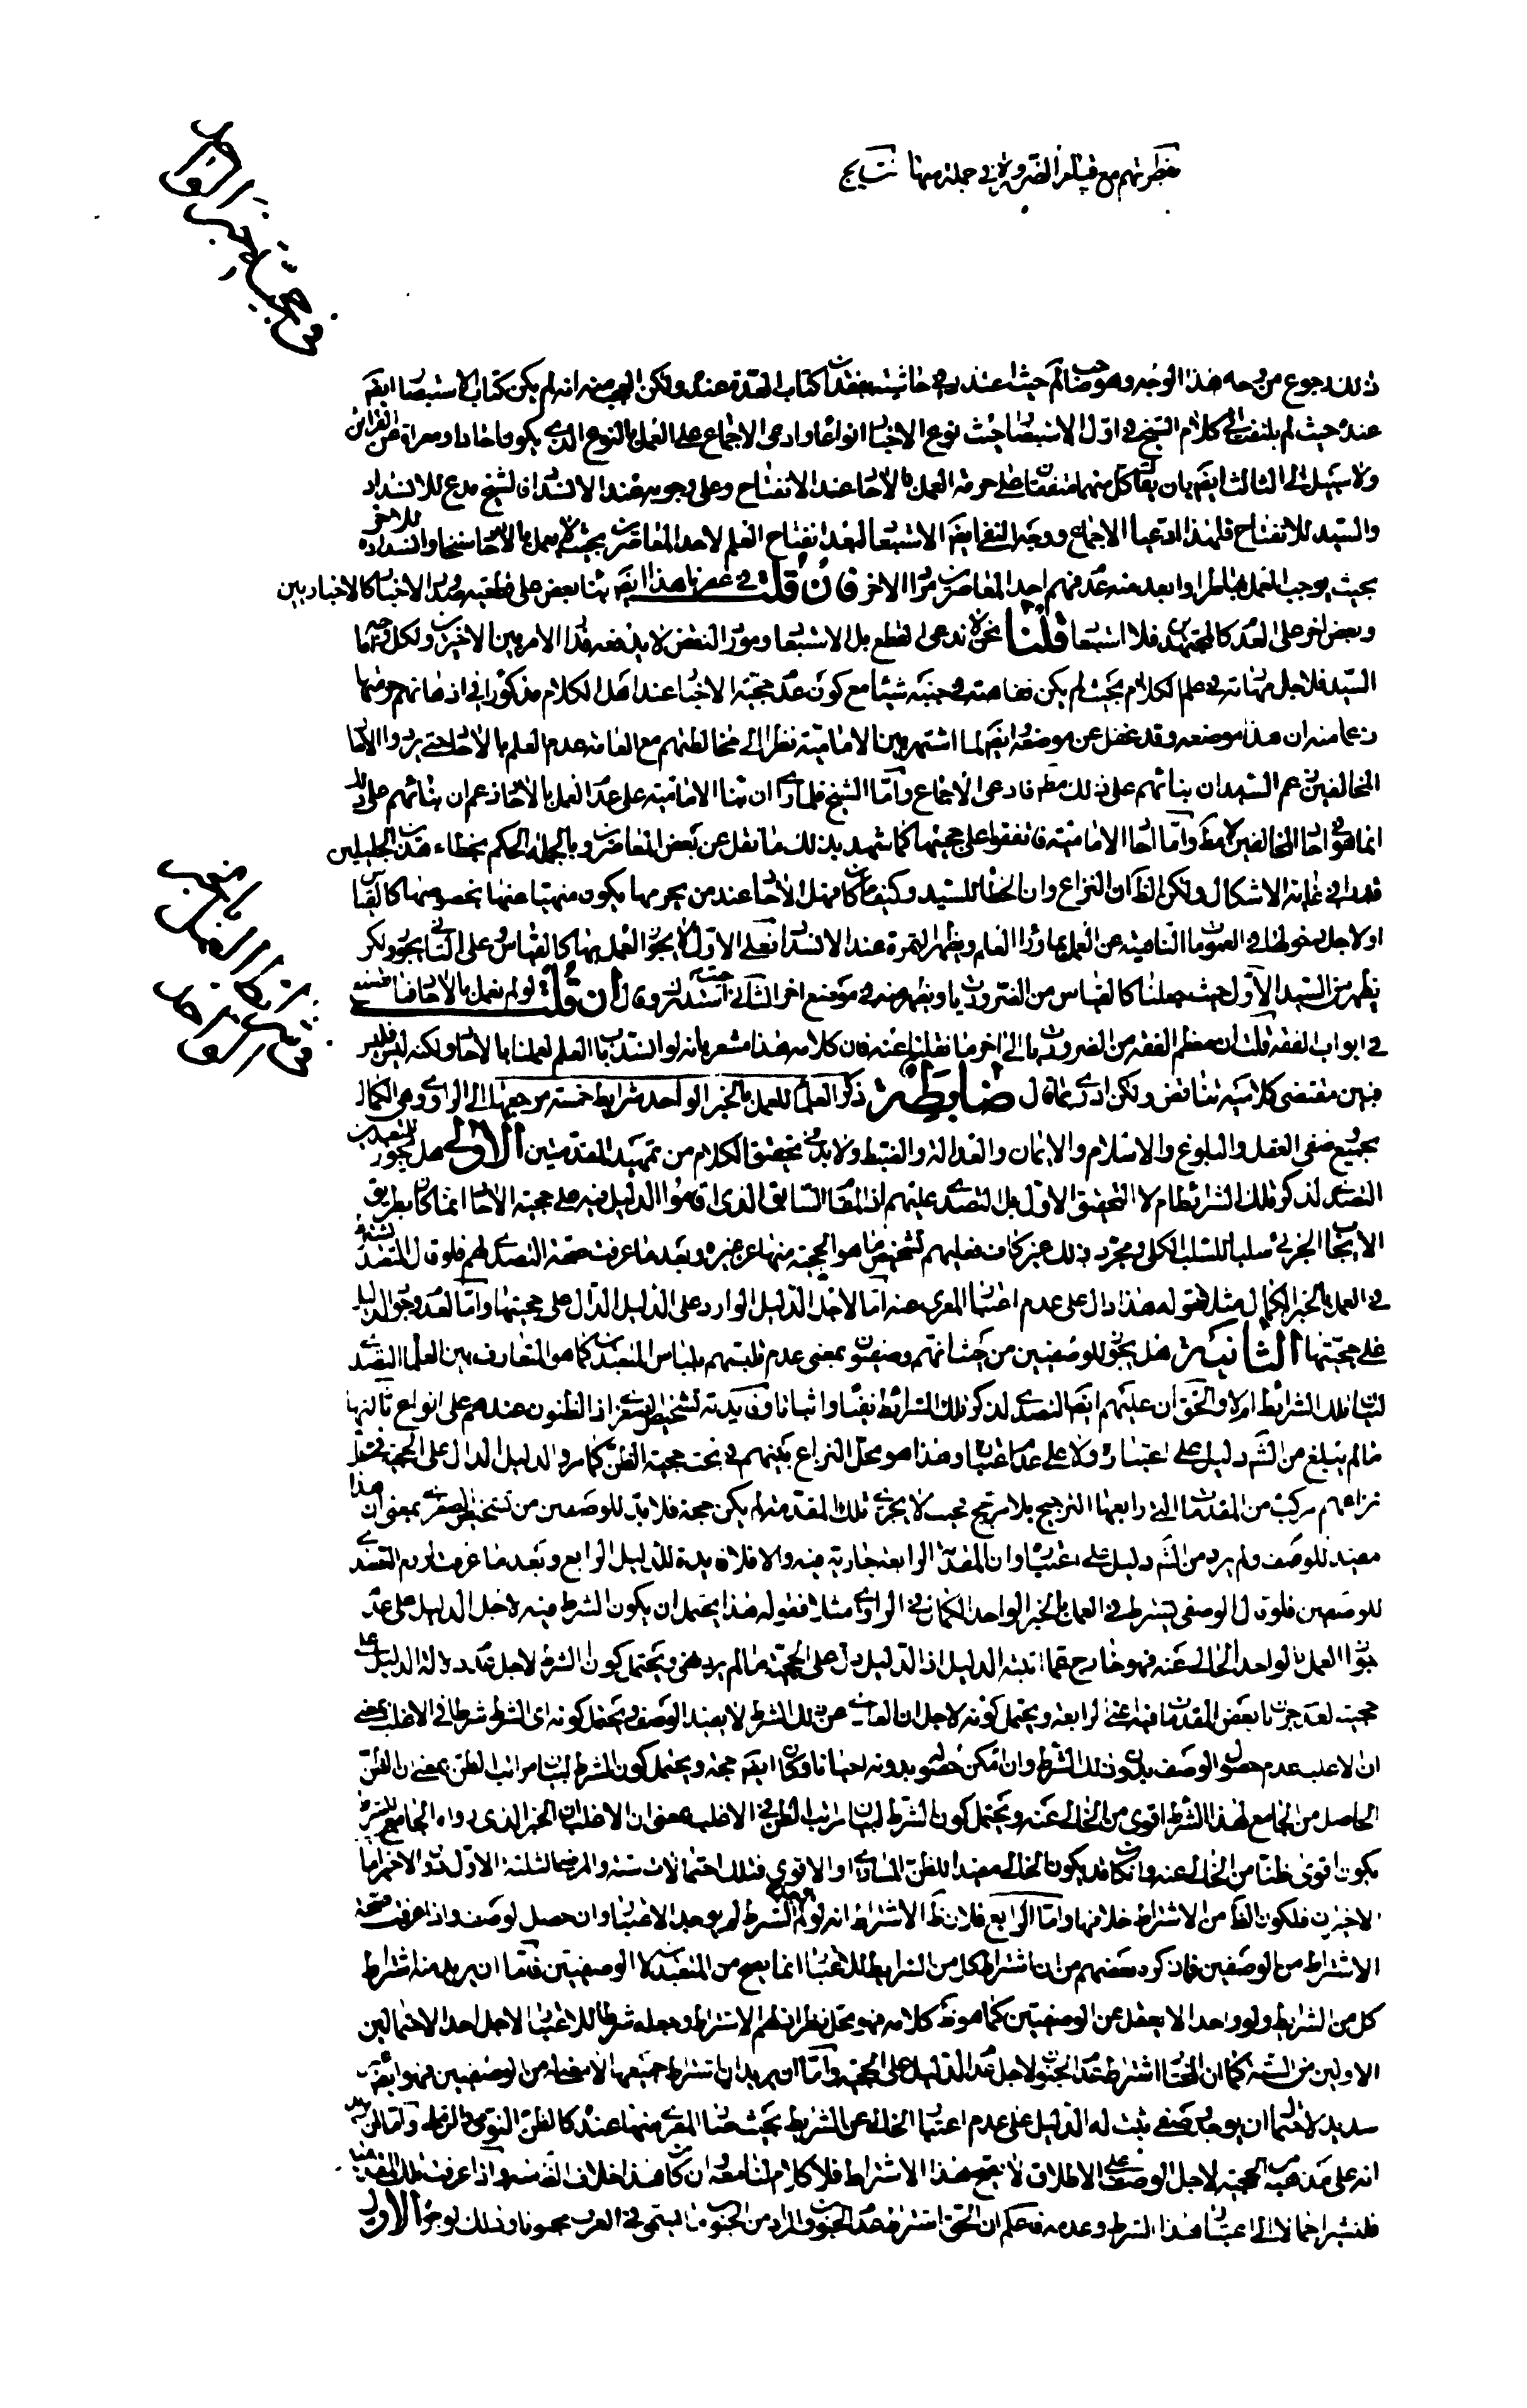 مع قيام الضرورة في جملة منها نتايج
في حجية الاخبار
ذلك رجوع من وجه هذا الوجه وهو صاحب المعالم حيث اعتذر في حاشيته بفقدان كتاب العدة عنده ولكن العجب منه انه لم يكن كتاب الاستبصار ايضَ
عنده حيث لم يلتفت الى كلام الشيخ في اول الاستبصار حيث نوع الاخبار انواعا وادعى الاجماع على العمل بالنوع الذي يكون احادا ومعراة عن القرائن
ولا سبيل الى الثالث ايضَ بان يقال كل منهما متفقان على حرمة العمل بالاخبار عند الانفتاح وعلى وجوبه عند الانسداد فالشيخ مدع للانسداد
والسيد للانفتاح فلهذا ادعيا الاجماع ووجه النفي ايضَ الاستبعاد لبعد انفتاح العلم لاحد المعاصرين بحيث لا يعمل بالاحاد وانسداده للاخر
بحيث يوجب العمل بها طرا وابعد منه عدم فهم احد المعاصرين مراد الاخر فان قلت في عصرنا هذا ايضَ بناء بعض على قطعية صدور الاخبار كالاخباريين
وبعض اخر على العدم كالمجتهدين فلا استبعاد قلنا نحن لا ندعي القطع بل الاستبعاد ومورد النقض لا يدفعه فدار الامر بين الاخيرين ولكل وجه اما
السيد فلاجل مهارته في علم الكلام بحيث لم يكن فقاهته في جنبه شيئا مع كون عدم حجية الاخبار عند اهل الكلام مذكورا في اذهانهم ومنها
زعما منه ان هذا موضعه وقد غفل عن موضعه ايضَ لما اشتهر بين الامامية نظرا الى مخالطتهم مع العامة عدم العمل بالاحاد حتى يردوا الاخبار
المخالفين زعم السيد ان بنائهم على ذلك مطَ فادعى الاجماع واما الشيخ فلما راى ان بناء الامامية على عدم العمل بالاحاد زعم ان بنائهم على ذلك
انما هو في اخبار المخالفين لا مطَ واما اخبار الامامية فاتفقوا على حجيتها كما شهد بذلك ما نقل عن بعض المعاصرين وبالجملة الحكم بخطاء هذين الجليلين
في غاية الاشكال ولكن الظَ ان النزاع وان الخطأ للسيد وكيف كان فهل الاخبار عند من يحرمها يكون منهيا عنها بخصوصها كالقياس
او لاجل دخولها في العمومات الناهية عن العمل بما وراء العلم ويظهر الثمرة عند الانسداد فعلى الاول لا يجوز العمل بها كالقياس وعلى الثاني يجوز ولكن
يظهر من السيد الاول حيث جعلنا كالقياس من الضروريات ويظهر منه في موضع اخر الثاني حيث استدرك وقال ان قلت لو لم نعمل بالاحاد فما نصنع
في ابواب الفقه قلت ان معظم الفقه من الضروريات الى اخر ما نقلناه عنه فان كلامه هذا مشعر بانه لو انسد باب العلم لعملنا بالاحاد ولكنه ليس فليس
فبين مقتضى كلاميه تناقض ولكن ادرى بما قال ضابطة ذكر العلماء للعمل بالخبر الواحد شرايط خمسة مرجعها الى الراوي وهي الكمال
بجميع وصفي العقل والبلوغ والاسلام والايمان والعدالة والضبط ولا بد في تحقيق الكلام من تمهيد المقدمتين الاولى هل يجوز للتعبديين
التصدي لذكر تلك الشرائط ام لا التحقيق الاول بل التصدي عليهم اذ المقام السابق الذي اقاموا الدليل فيه على حجية الاخبار انما كان بطريق
الايجاب الجزئي سلبا للسلب الكلي ومجرد ذلك غير كاف فعليهم تشخيص ما هو الحجة منها عن غيره وبعد ما عرفت صحة التصدي لهم فلو قال التعبدي يشترط
في العمل بالخبر الكمال مثلا فقوله هذا دال على عدم اعتبار المعرى عنه اما لاجل الدليل الوارد على الدليل الدال على حجيتها واما لعدم وجود الدليل
على حجيتها الثانية هل يجوز للوصفيين من حيث انهم وصفيون بمعنى عدم تلبسهم بلباس التعبديين كما هو المتعارف بين العلماء التصدي
لبيان تلك الشرايط ام لا والحق ان عليهم ايضَ التصدي لذكر تلك الشرائط نفيا واثباتا وفايدته تشخيص الصغرى اذ الظنون عندهم على انواع ثالثها
ما لم يبلغ من الشَرع دليل على اعتباره ولا على عدم اعتباره وهذا هو محل النزاع بينهم في بحث حجية الظن كما مر والدليل الدال على الحجية في محل
نزاعهم مركب من المقدمات التي رابعها الترجيح بلا مرجح بحيث لا يجري تلك المقدمة لم يكن حجة فلا بد للوصفيين من تشخيص الصغرى بمعنى ان هذا
مفيد للوصف ولم يرد من الشَرع دليل على اعتباره وان المقدمة الرابعة جارية فيه والا فلا فايدة للدليل الرابع وبعد ما عرفت لزوم التصدي
للوصفيين فلو قال الوصفي يشترط في العمل بالخبر الواحد الكمال في الراوي مثلا فقوله هذا يحتمل ان يكون الشرط فيه لاجل الدليل على عدم
جواز العمل بالواحد الخالي عنه فهو خارج عما اثبته الدليل اذ الدليل دل على الحجية ما لم يرد نهي ويحتمل كون الشرط لاجل عدم دلالة الدليل على
حجيته لعدم جريان بعض المقدمات فيه اعني الرابعة ويحتمل كونه لاجل ان العاري عن ذلك الشرط لا يفيد الوصف ويحتمل كونه اي الشرط شرطا في الاغلب بمعنى
ان الاغلب عدم حصول الوصف بدون ذلك الشرط وان امكن حصوله بدونه احيانا وكان ايضَ حجة ويحتمل كون الشرط لبيان مراتب الظن بمعنى ان الظن
الحاصل من الجامع لهذا الشرط اقوى من الخالي عنه ويحتمل كون الشرط لبيان مراتب الظن في الاغلب بمعنى ان الاغلب ان الخبر الذي رواه الجامع للشرط
يكون اقوى ظنا من الخالي عنه وان كان قد يكون الخالي مفيدا للظن المساوي او الاقوى فتلك احتمالات ستة والمرضي الثلثة الاول دون الاخر اما
الاخيران فلكون الظَ من الاشتراط خلافهما واما الرابع فلان ظَ الاشتراط انه لو لم يوجد الشرط لم يوجد الاعتبار وان حصل الوصف واذا عرفت صحة
الاشتراط من الوصفيين فما ذكره بعضهم من ان اشتراط كل من الشرايط للاعتبار انما يصح من التعبديين لا الوصفيين فاما ان يريد منه اشتراط
كل من الشرايط ولو واحدا لا يعقل من الوصفيين كما هو ظَ كلامه فهو محل نظر اذ لهم الاشتراط وجعله شرطا للاعتبار لاجل احد الاحتمالين
الاولين من الستة كما ان المختار اشتراط عدم الجنون لاجل عدم الدليل على الحجية واما ان يريد ان اشتراط جميعها لا معنى له من الوصفيين فهو ايضَ غير
سديد لاحتمال ان يوجد وصفي يثبت له الدليل على عدم اعتبار الخالي عن الشرايط بحيث كان المعرى منها عنده كالظن النومي والرملي واما ان يريد
انه على مذهب حجية لاجل الوصف على الاطلاق لا يصح هذا الاشتراط فلا كلام لنا معه وان كان هذا خلاف الفرض واذا عرفت تلك المقدمتين
فلنشر اجمالا الى اعتبار هذا الشرط وعدمه فاعلم ان الحق اشتراط عدم الجنون والمراد من الجنون ما يسمى في العرف مجنونا وذلك لوجوه الاول